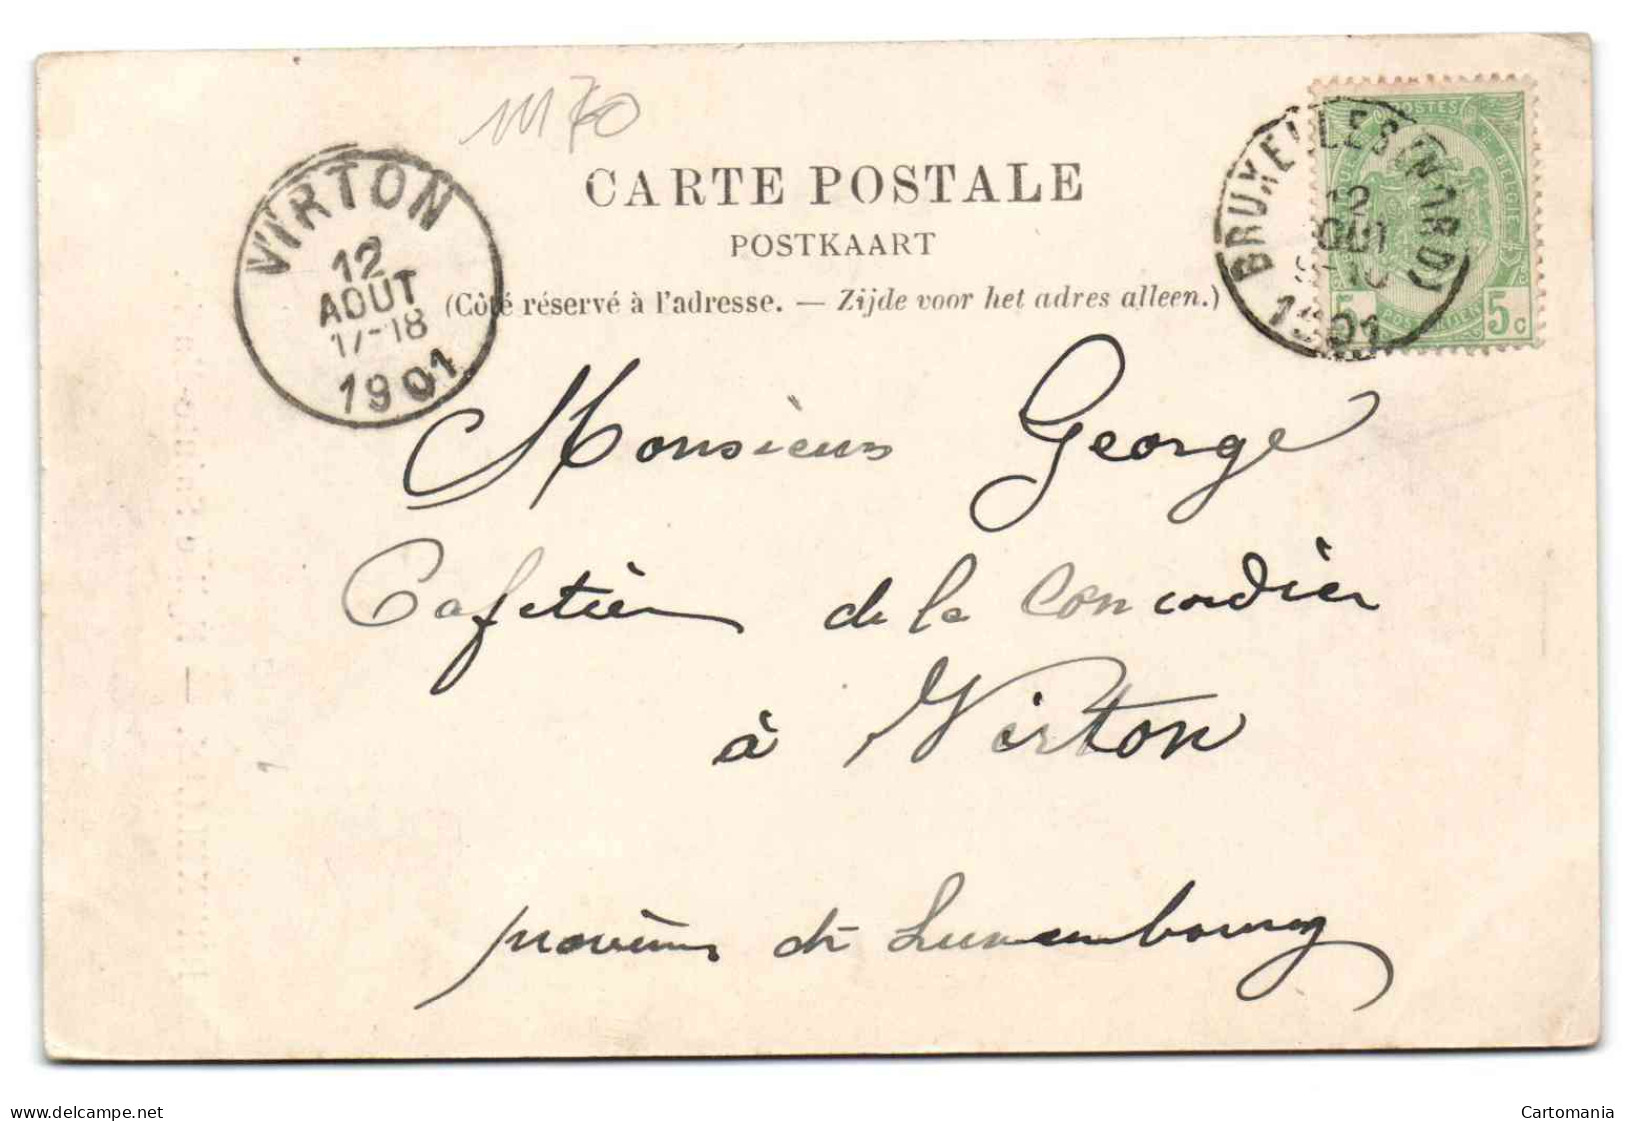 1170
CARTE POSTALE
POSTKAART
(Côté réservé à l'adresse. — Zijde voor het adres alleen.)
VIRTON
12
AOUT
17-18
1901
BRUXELLES (NORD)
12
AOUT
1901
POSTES
BELGIQUE
5 5c
Monsieur George
Cafetier de la Concordier
à Virton
province de Luxembourg
www.delcampe.net
Cartomania